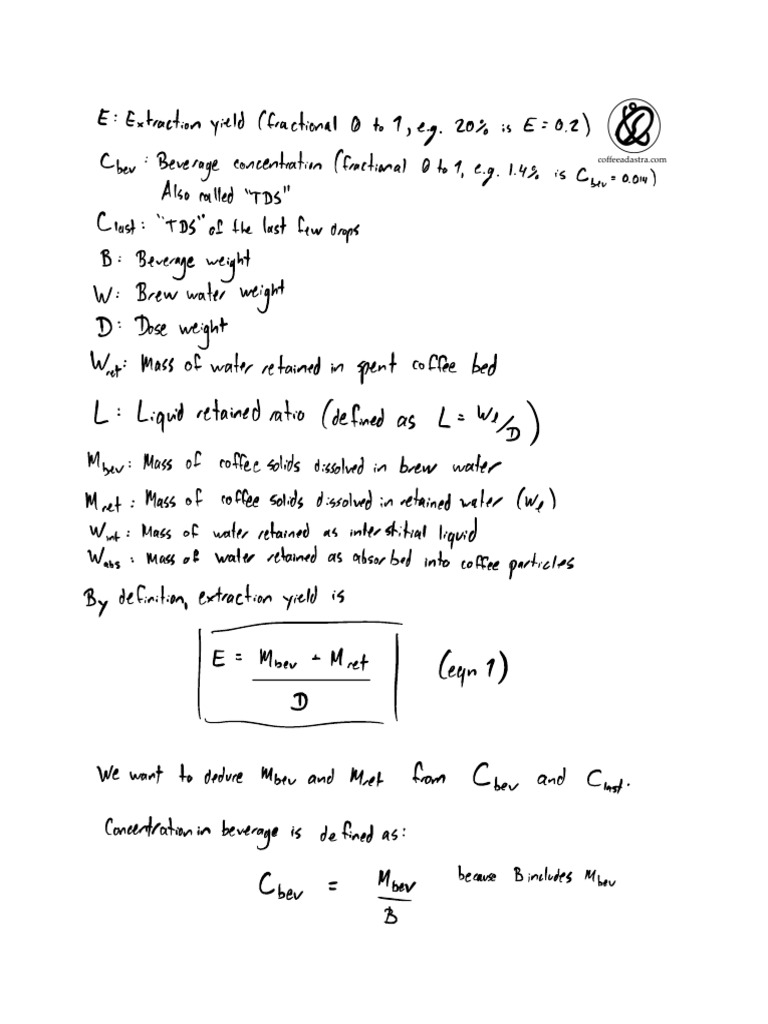 E: Extraction yield (fractional 0 to 1, e.g. 20% is E = 0.2)
coffeeadastra.com
C_bev: Beverage concentration (fractional 0 to 1, e.g. 1.4% is C_bev = 0.014)
Also called "TDS"
C_last: "TDS" of the last few drops
B: Beverage weight
W: Brew water weight
D: Dose weight
W_ret: Mass of water retained in spent coffee bed
L: Liquid retained ratio (defined as L = W_l/D)
M_bev: Mass of coffee solids dissolved in brew water
M_ret: Mass of coffee solids dissolved in retained water (W_l)
W_int: Mass of water retained as interstitial liquid
W_abs: Mass of water retained as absorbed into coffee particles
By definition, extraction yield is
E = M_bev + M_ret (eqn 1)
D
We want to deduce M_bev and M_ret from C_bev and C_last.
Concentration in beverage is defined as:
C_bev = M_bev because B includes M_bev
B